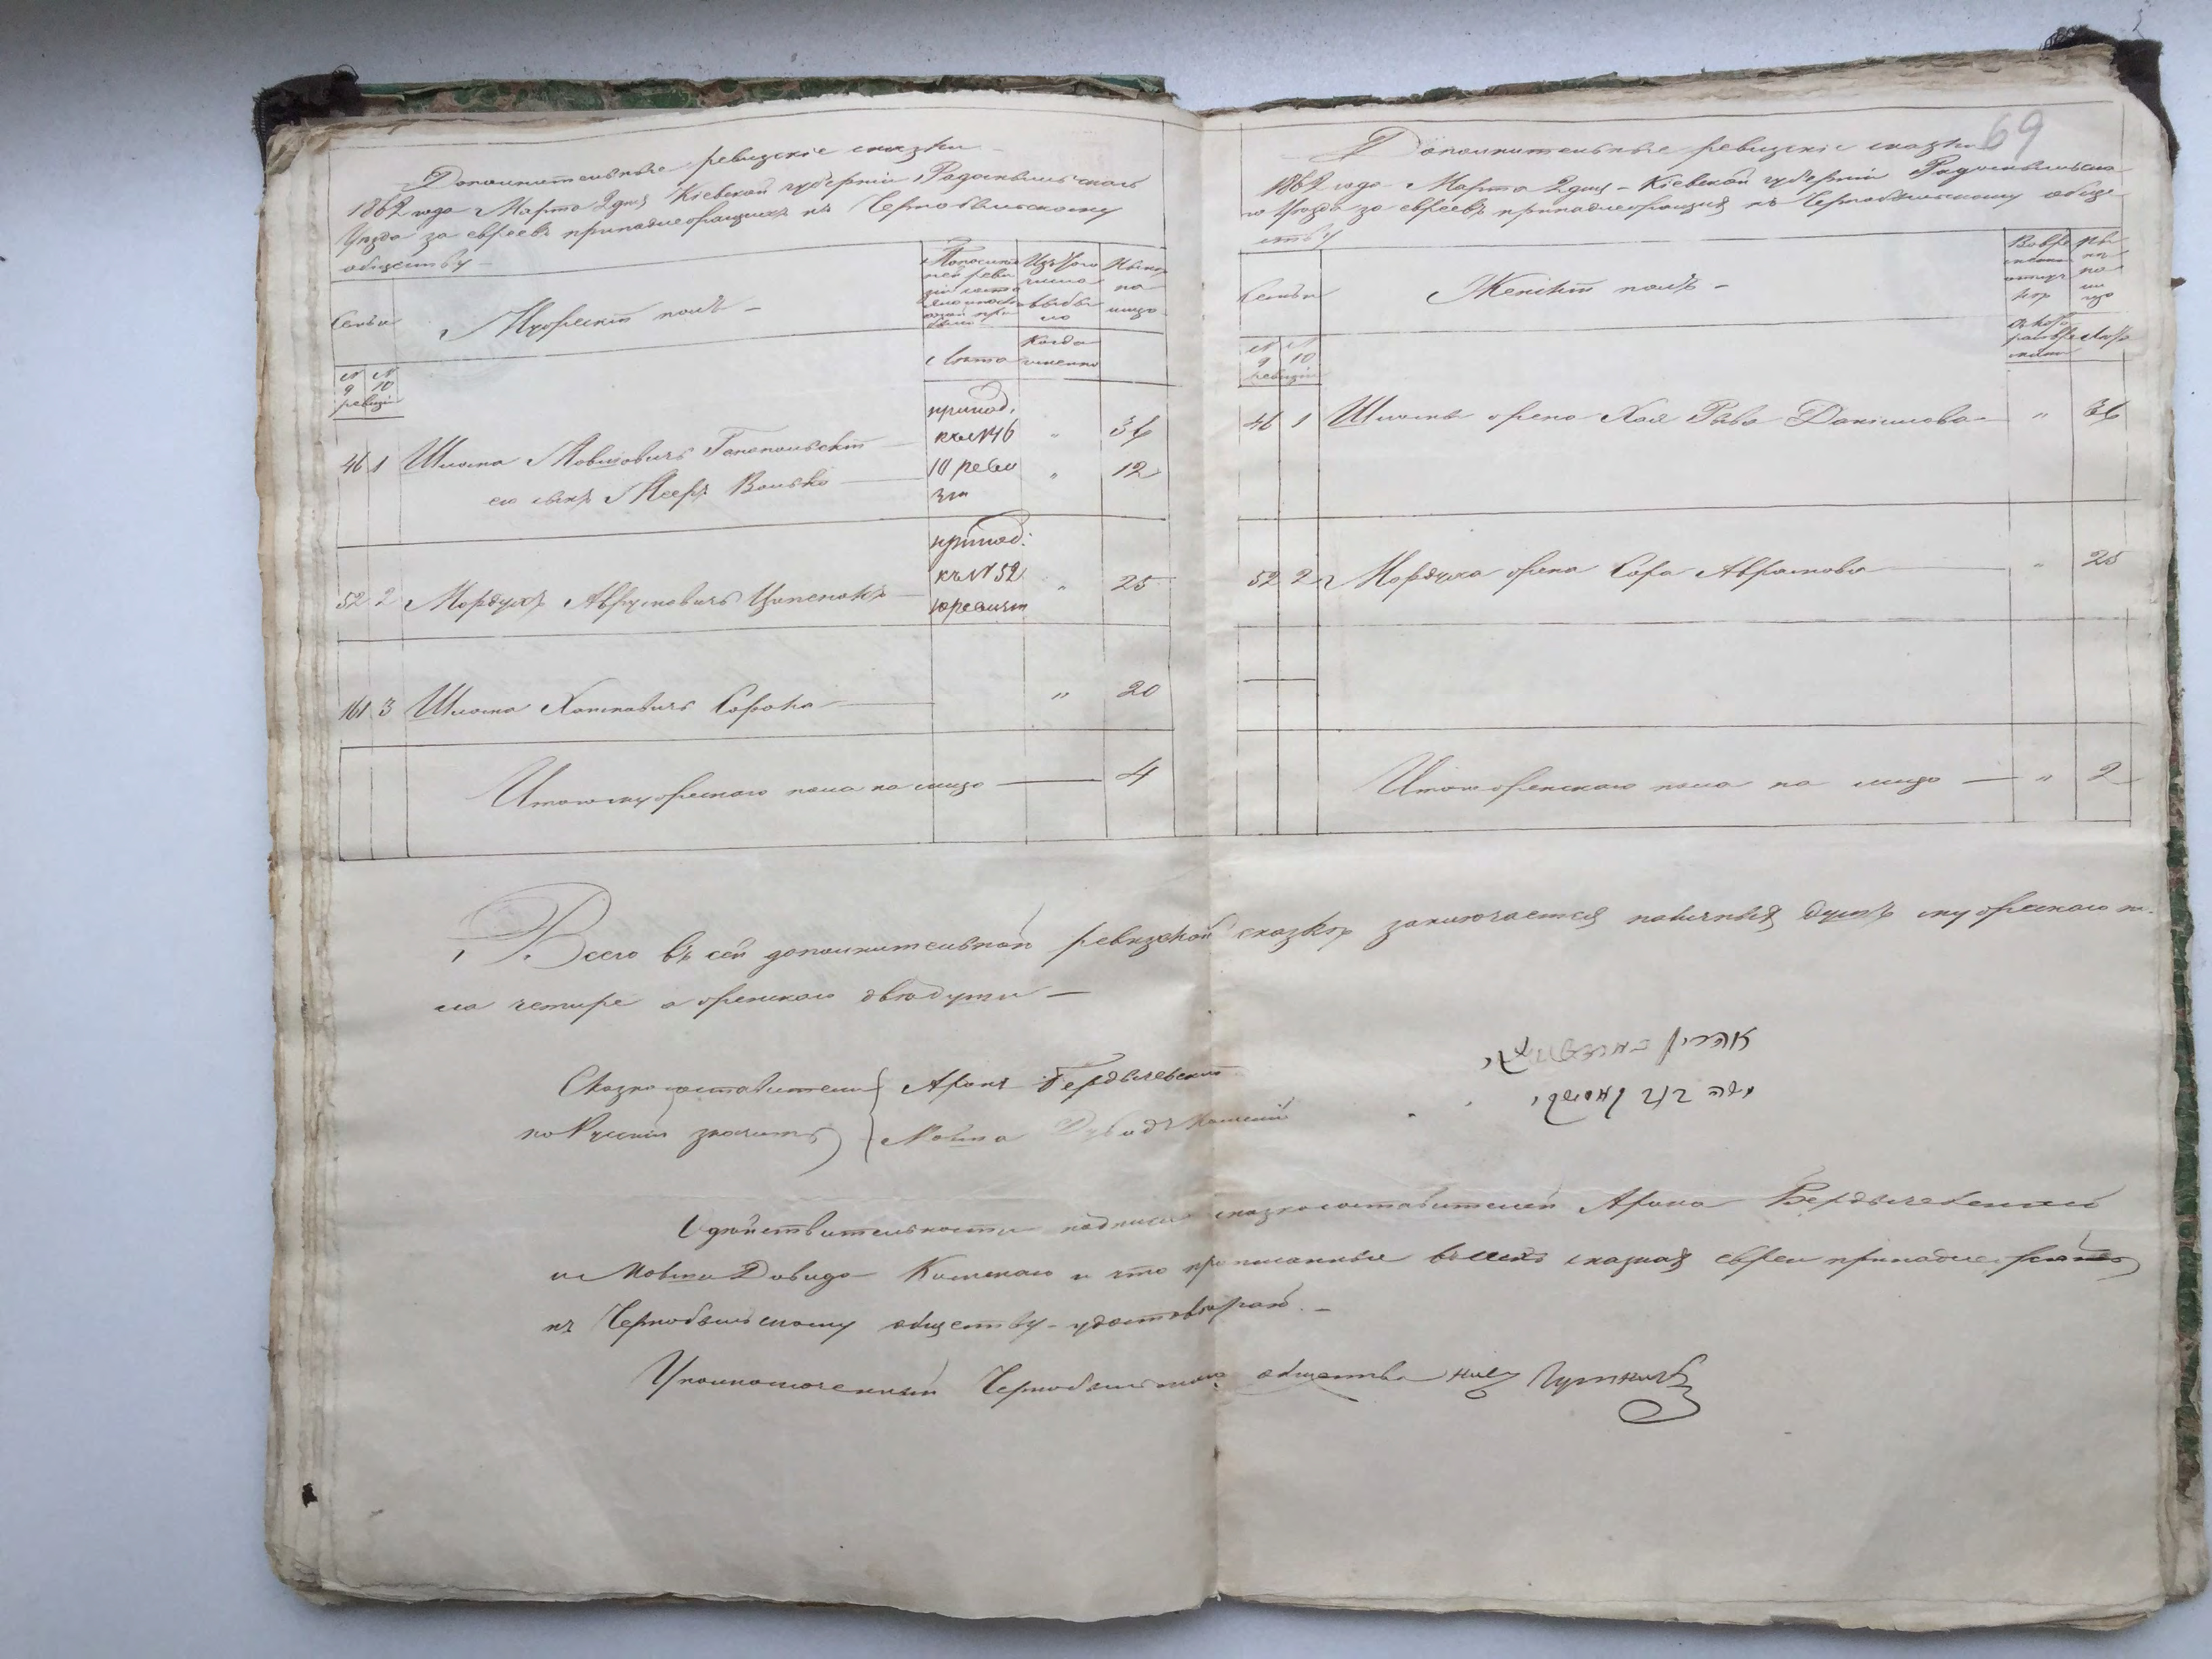 Дополнительные ревизскіе сказки
1862 года Марта 2 дня Кіевской губерніи, Радомысльскаго
Уѣзда за евреевъ принадлежащихъ къ Чернобыльскому
обществу —
Семьи
Мужескій полъ —
Изъ того числа выбыло
Нынѣ на лицо
Лѣта
Когда именно
№ 9 № 10 ревизіи
46 1 Шлома Мовшовичъ Гапепольскій принад. къ №46 10 ревизіи " 36
его сынъ Мееръ Волько " 12
52 2 Мордухъ Аврумовичъ Цыпенюкъ принад: къ №52 10 ревизіи " 25
161 3 Шлома Хаимовичъ Сорока " 20
Итого мужескаго пола на лицо — 4
69
Дополнительные ревизскіе сказки
1862 года Марта 2 дня — Кіевской губерніи Радомысльска-
го Уѣзда за евреевъ принадлежащихъ къ Чернобыльскому обще-
ству
Семьи
Женскій полъ —
Лѣта
№ 9 № 10 ревизіи
46 1 Шломы жена Хая Рыва Даніилова — " 36
52 2 Мордуха жена Сора Аврамова — " 25
Итого женскаго пола на лицо — " 2
Всего въ сей дополнительной ревизской сказкѣ заключается наличныхъ душъ мужескаго по-
ла четыре а женскаго двѣ души —
Сказкосоставители Аронъ Бердычевскій
по Руски значитъ Мовша Дувидъ
Въ дѣйствительности подписи сказкосоставителей Арона Бердычевскаго
и Мовши Довида и что прописанные въ сихъ сказкахъ евреи принадлежатъ
къ Чернобыльскому обществу удостовѣряю. —
Уполномоченный Чернобыльскаго общества